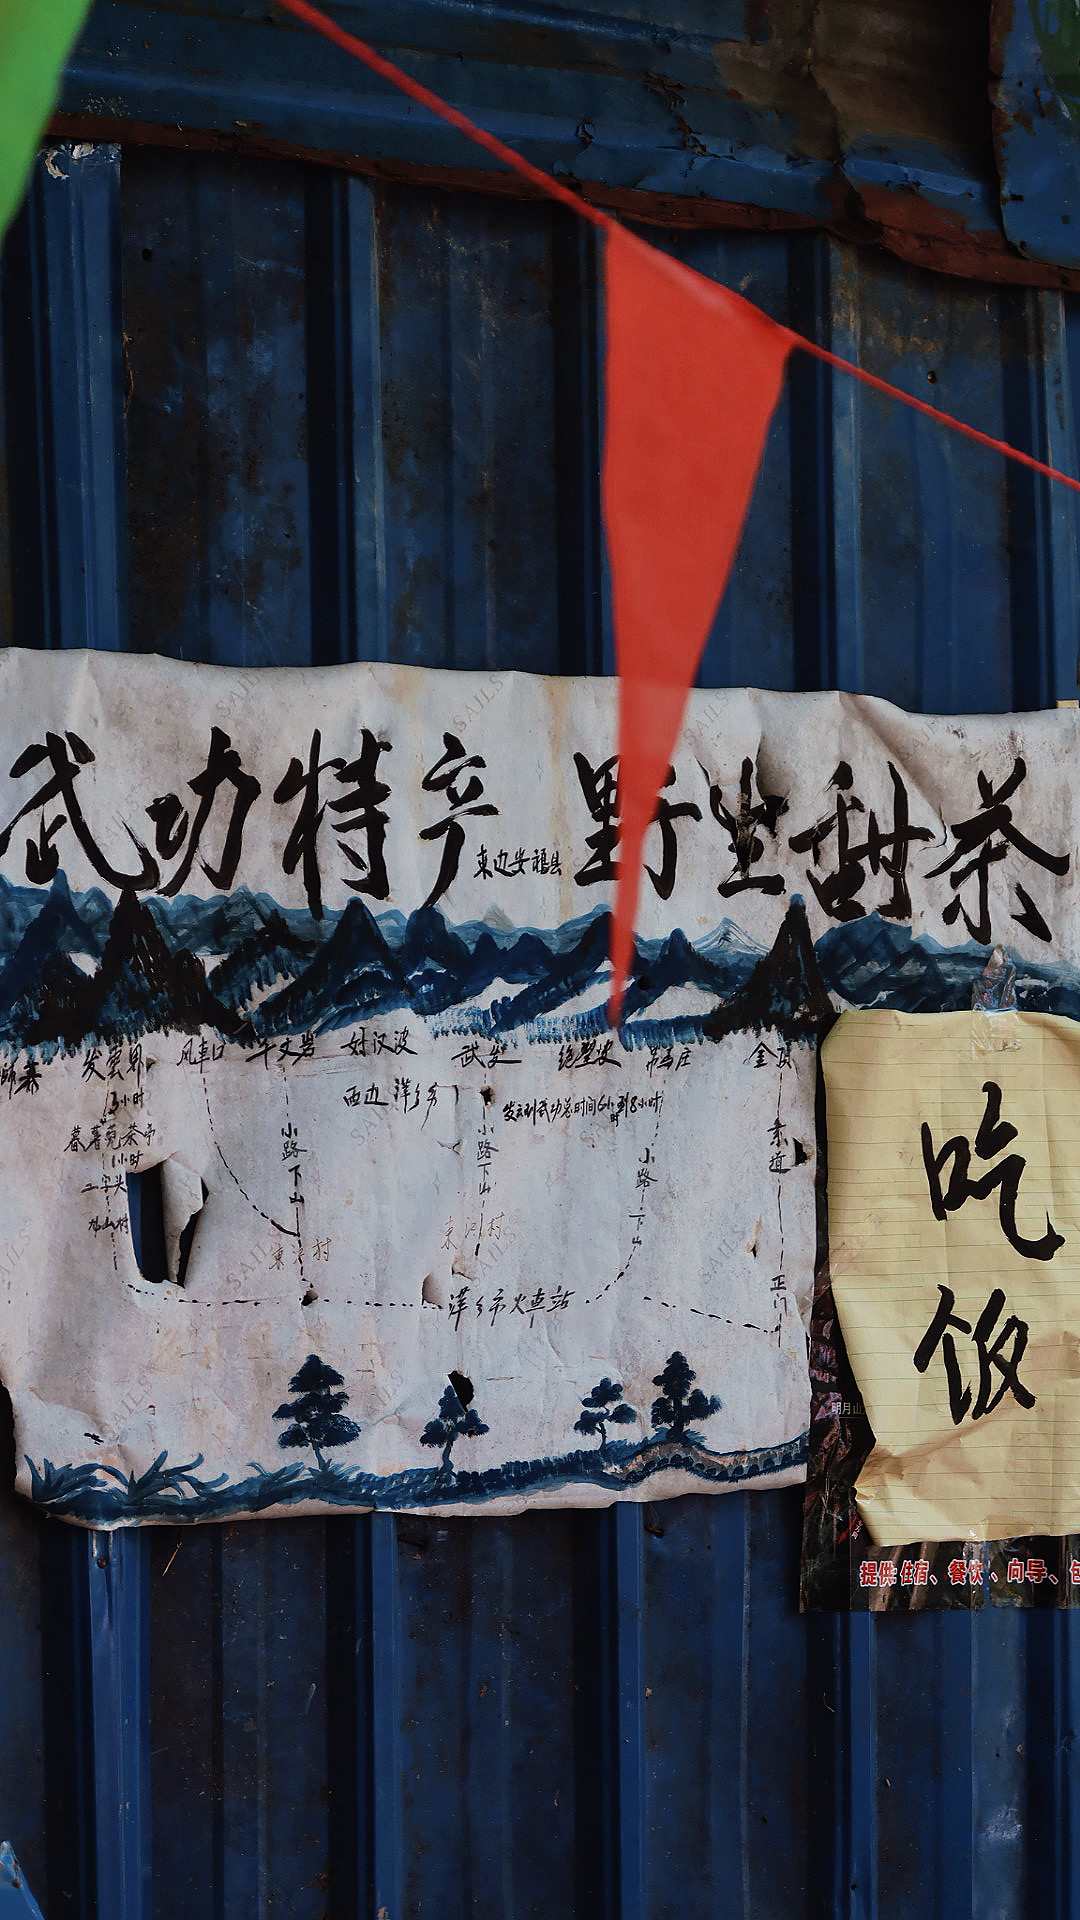 武功特产 野生甜茶
东边安福县
发雲界 风車口 千丈岩 好汉波 武发 绝壁坡 吊马庄 金顶
西边 萍乡
发云到武功总时间6小时到8小时
3小时
1小时
二字头
小路下山
小路下山
小路下山
索道
正门
东江村
萍乡市火車站
吃饭
明月山
提供 住宿、餐饮、向导、包
SAILS